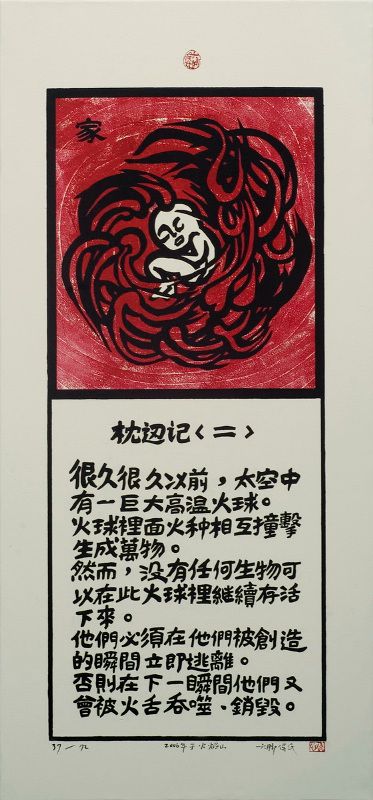 家
枕边记〈二〉
很久很久以前，太空中
有一巨大高温火球。
火球裡面火种相互撞擊
生成萬物。
然而，没有任何生物可
以在此火球裡継續存活
下來。
他們必須在他們被創造
的瞬間立即逃離。
否則在下一瞬間他們又
會被火舌吞噬、銷毀。